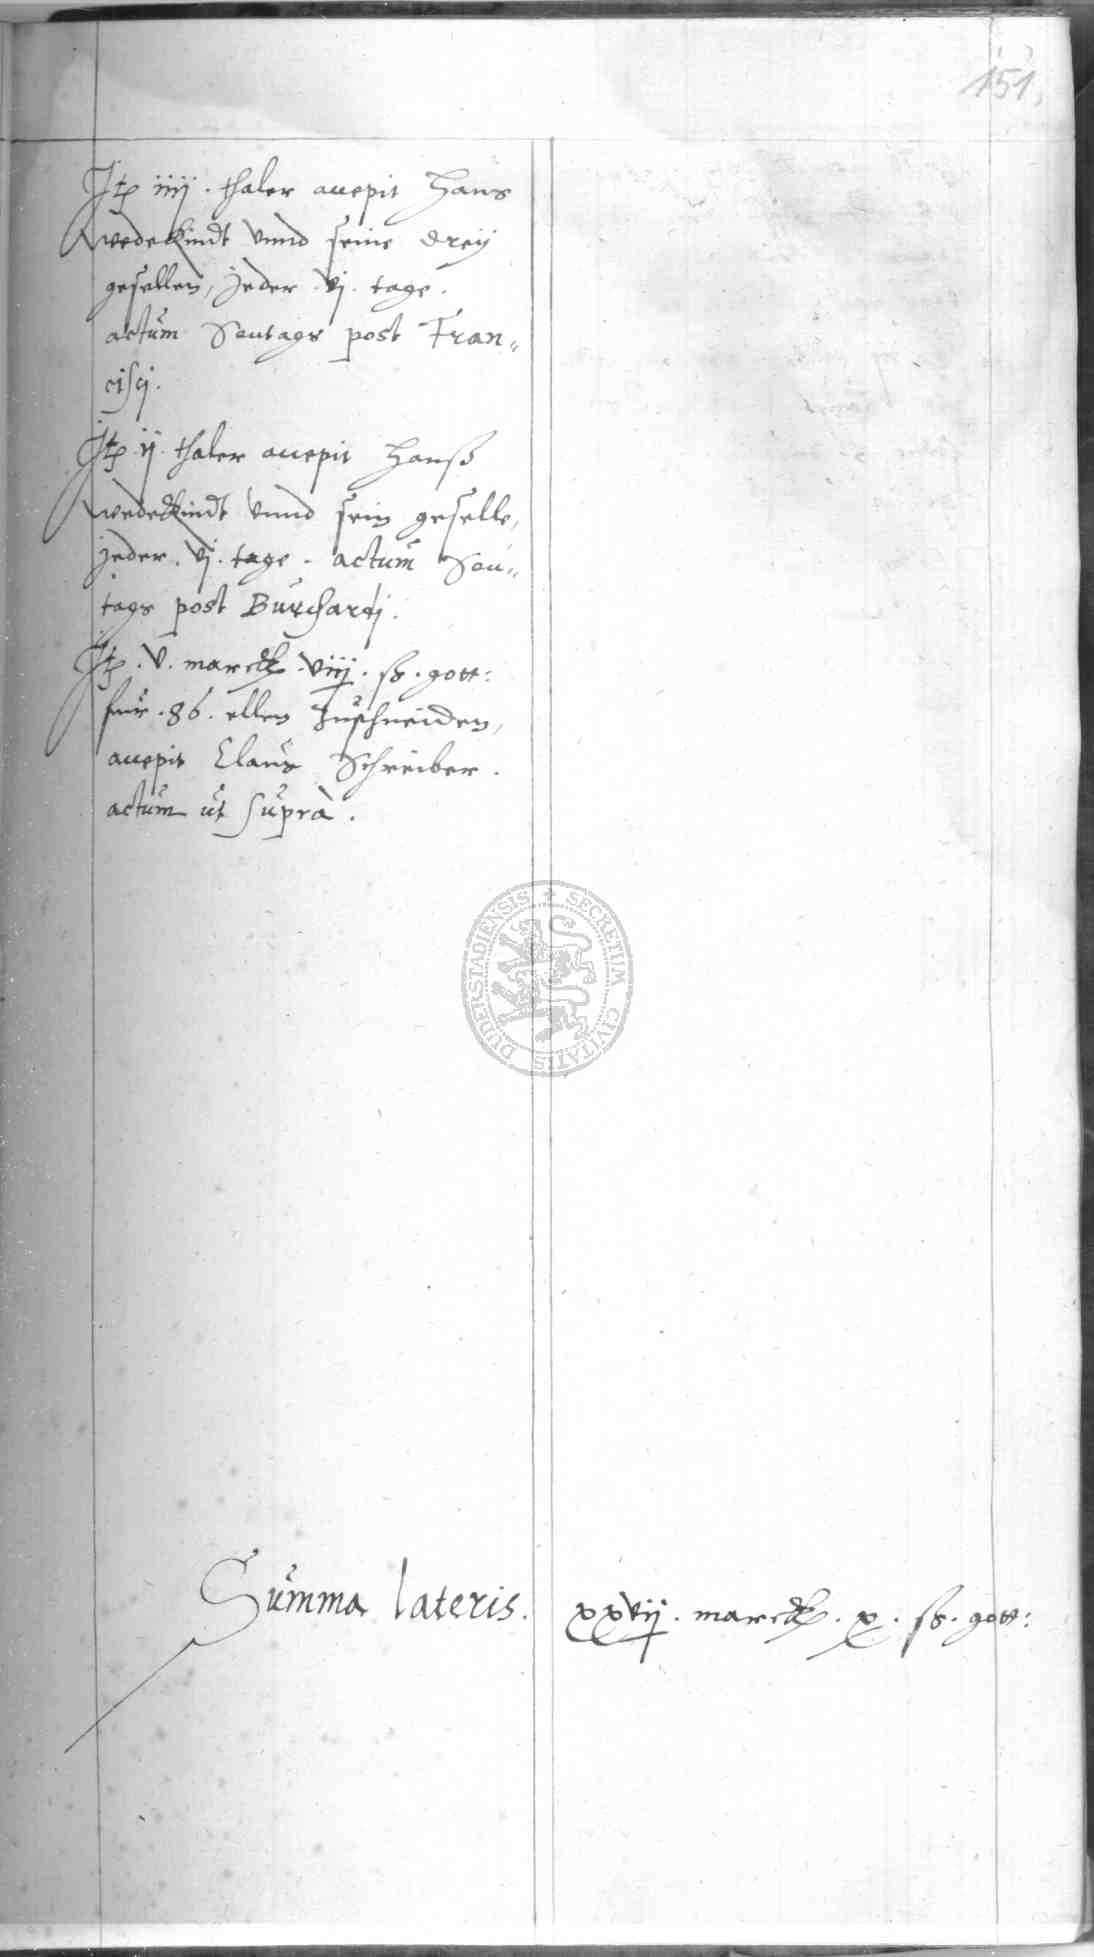 151.
Jtp iiij. thaler accepit Hans
wedekindt vnnd seine dreij
gesellen, jeder. vj. tage.
actum Sontags post Fran„
cisci.
Jtp ij. thaler accepit Hanß
wedekindt vnnd sein geselle,
jeder. vj. tage. actum Son„
tags post Burchardi.
Jtp. v. marck. viij. ß. gott:
fur. 86. ellen Zuschneiden,
accepit Claus Schreiber.
actum ut suprà.
DUDERSTADIENSIS SECRETUM CIVITATIS
Summa lateris. xxvij. marck. x. ß. gott: